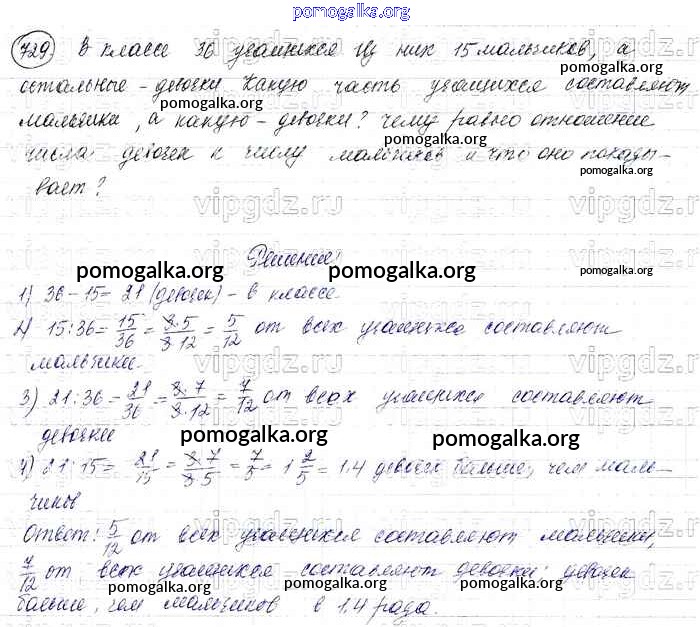 pomogalka.org
729 В классе 36 учащихся из них 15 мальчиков, а
остальные - девочки Какую часть учащихся составляют
pomogalka.org pomogalka.org
мальчики, а какую - девочки? Чему равно отношение
pomogalka.org
числа девочек к числу мальчиков и что оно показы-
pomogalka.org
вает?
vipgdz.ru vipgdz.ru vipgdz.ru
Решение:
pomogalka.org pomogalka.org
1) 36 - 15 = 21 (девочек) - в классе
2) 15 : 36 = 15/36 = 3·5/3·12 = 5/12 от всех учащихся составляют
мальчики.
3) 21 : 36 = 21/36 = 3·7/3·12 = 7/12 от всех учащихся составляют
девочки
pomogalka.org pomogalka.org
4) 21 : 15 = 21/15 = 3·7/3·5 = 7/5 = 1 2/5 = 1.4 девочек больше, чем маль-
чиков
Ответ: 5/12 от всех учащихся составляют мальчики,
7/12 от всех учащихся составляют девочки; девочек
pomogalka.org pomogalka.org
больше, чем мальчиков в 1.4 раза.
pomogalka.org